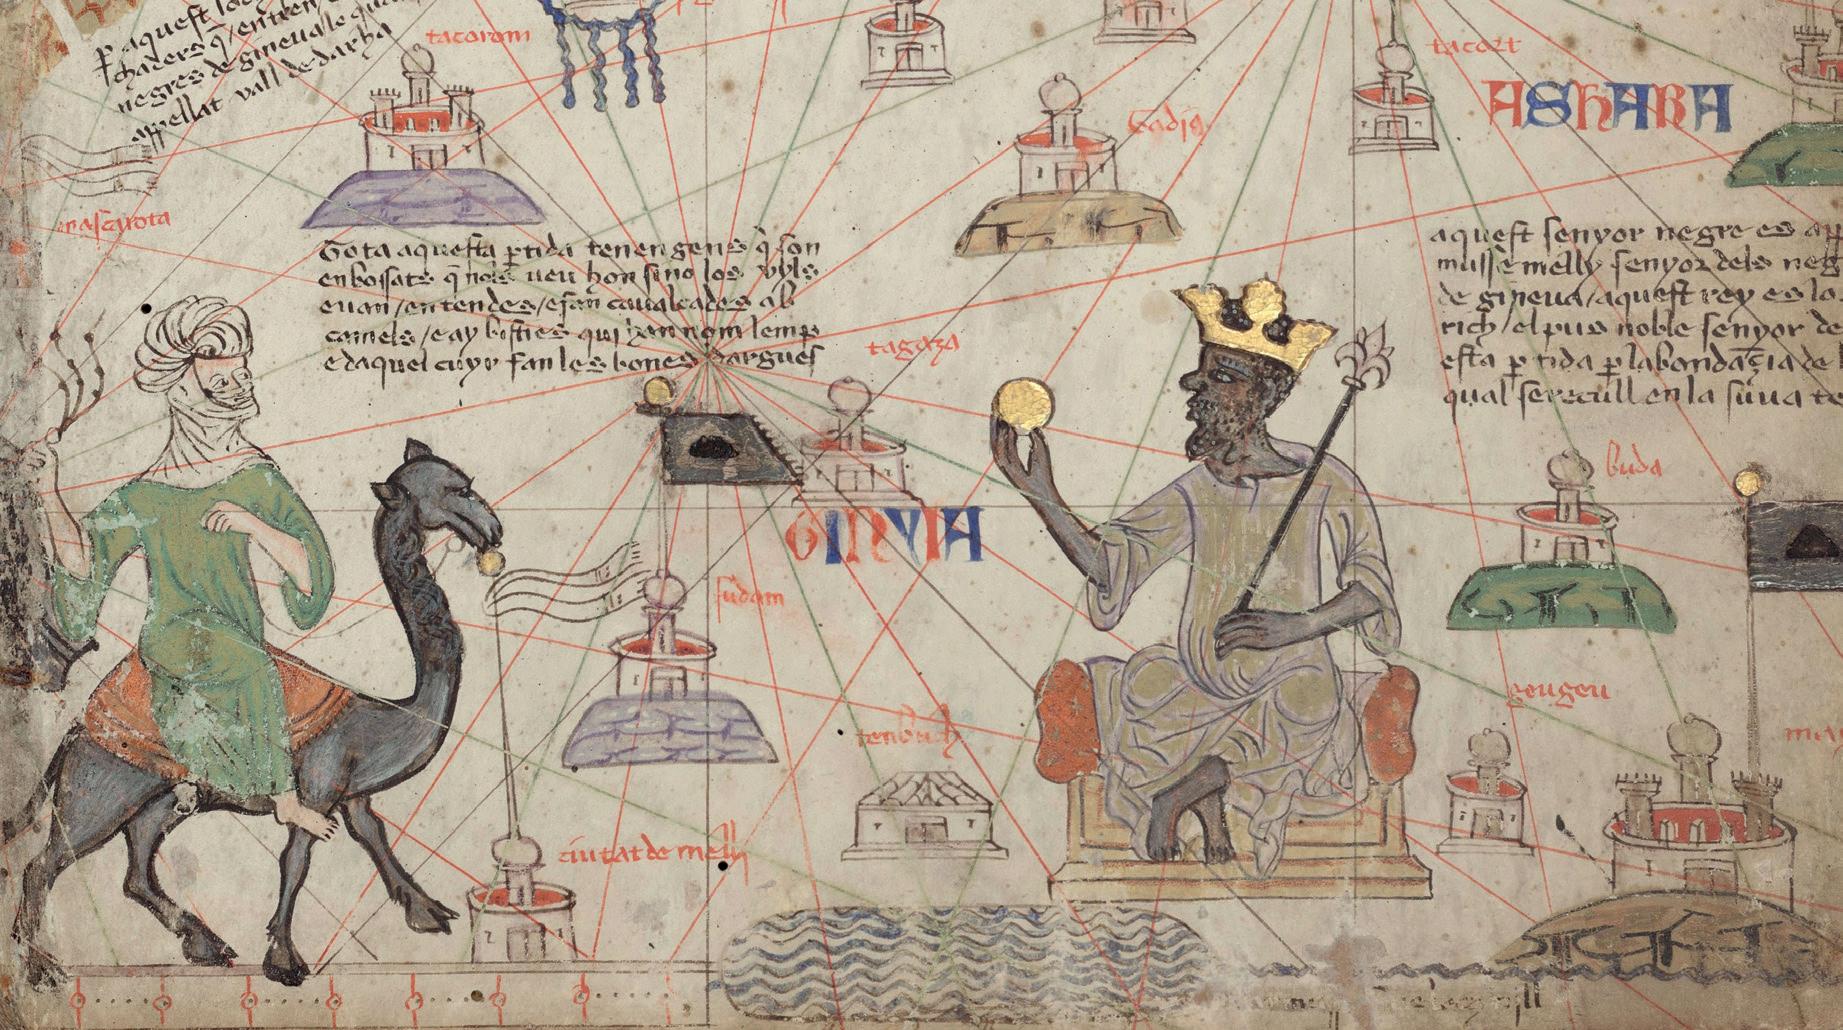 p aquest loc
negres de gineua
apellat vall de darha
tacorom
tacort
ASHARA
mascarota
Tota aquesta ptida tenen gens q son
enbossats q nols ueu hom sino los uyls
euan / en tendes / e fan caualcades ab
camels / e ay bisties qui han nom lemp
e daquel cuyr fan les bones dargues
aquest senyor negre es ap
musse melly senyor dels neg
de gineua / aquest rey es lo
rich / el pus noble senyor de
esta ptida p labondancia de l
qual se recull en la sua te
tagaza
buda
GINYIA
sudam
geugeu
tenbuch
ma
ciutat de melly